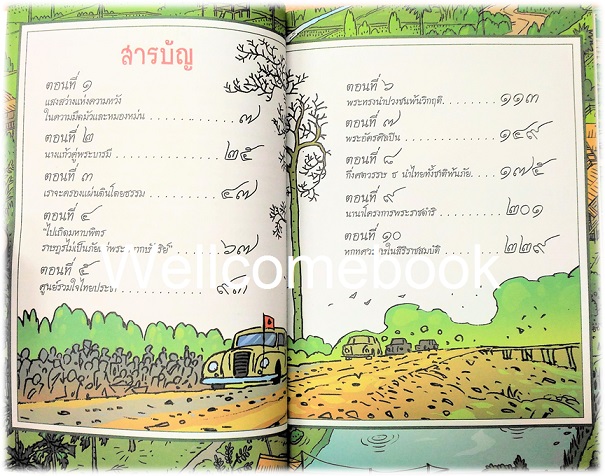 สารบัญ
ตอนที่ ๑
แสงสว่างแห่งความหวัง
ในความมืดมัวและหมองหม่น ๗
ตอนที่ ๒
นางแก้วคู่พระบารมี ๒๕
ตอนที่ ๓
เราจะครองแผ่นดินโดยธรรม ๔๗
ตอนที่ ๔
"ไปเถิดมหาบพิตร
ราษฎรไม่เป็นภัย ๖๗
ตอนที่ ๕
ศูนย์รวมใจไทยประ ๙๓
ตอนที่ ๖
พระทรงนำปวงชนพ้นวิกฤติ ๑๑๓
ตอนที่ ๗
พระอัครศิลปิน ๑๔๙
ตอนที่ ๘
กึ่งศตวรรษ ธ นำไทยทั้งชาติพ้นภัย ๑๗๕
ตอนที่ ๙
นานาโครงการพระราชดำริ ๒๐๑
ตอนที่ ๑๐
ในสิริราชสมบัติ ๒๒๙
Wellcomebook